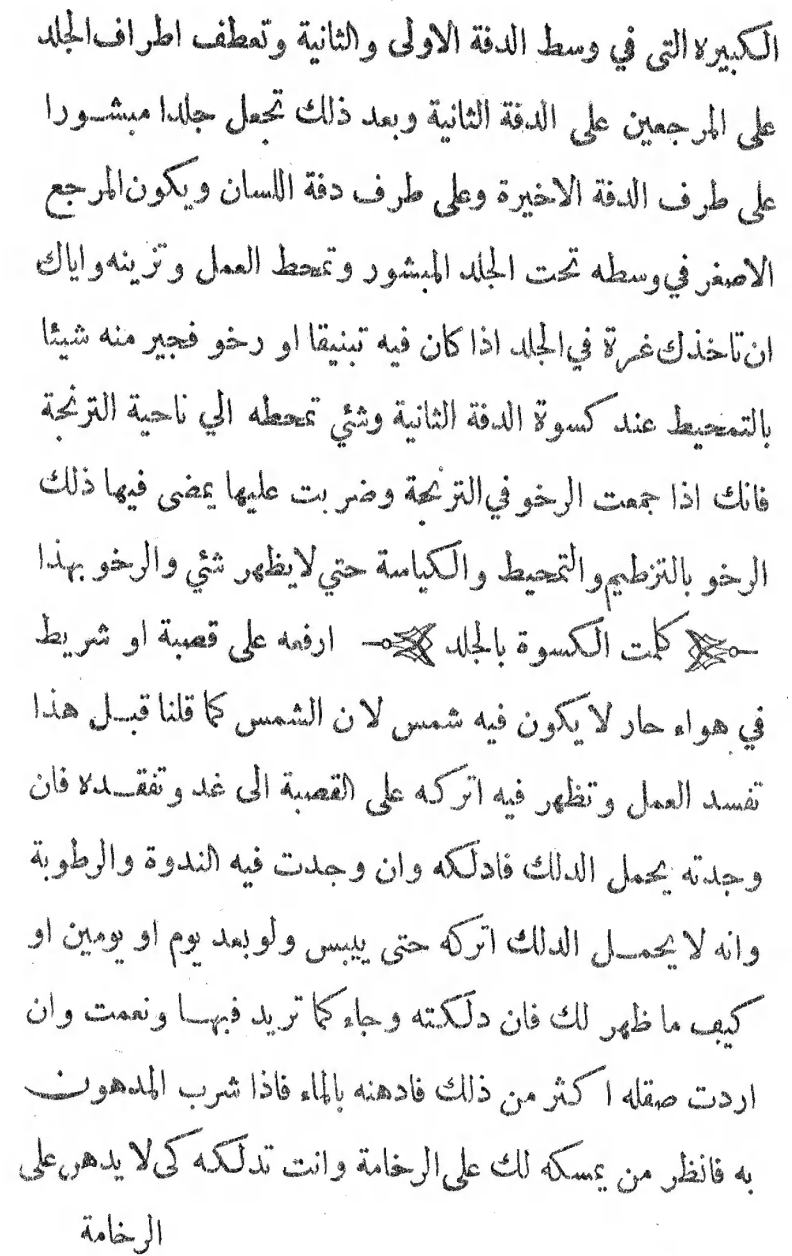 الكبيرة التى في وسط الدفة الاولى والثانية وتعطف اطراف الجلد
على المرجعين على الدفة الثانية وبعد ذلك تجعل جلدا مبشورا
على طرف الدفة الاخيرة وعلى طرف دفة اللسان ويكون المرجع
الاصغر في وسطه تحت الجلد المبشور وتمحط العمل وتزينه واياك
ان تاخذك غرة في الجلد اذا كان فيه تبنيقا او رخو فجير منه شيئا
بالتمحيط عند كسوة الدفة الثانية وشئي تمحطه الي ناحية الترنجة
فانك اذا جمعت الرخو في الترنجة وضربت عليها يمضى فيها ذلك
الرخو بالتزطيم والتمحيط والكياسة حتي لا يظهر شئي والرخو بهذا
كملت الكسوة بالجلد ارفعه على قصبة او شريط
في هواء حار لا يكون فيه شمس لان الشمس كما قلنا قبل هذا
تفسد العمل وتظهر فيه اتركه على القصبة الى غد وتفقده فان
وجدته يحمل الدلك فادلكه وان وجدت فيه الندوة والرطوبة
وانه لا يحمل الدلك اتركه حتى ييبس ولو بعد يوم او يومين او
كيف ما ظهر لك فان دلكته وجاء كما تريد فبها ونعمت وان
اردت صقله اكثر من ذلك فادهنه بالماء فاذا شرب المدهون
به فانظر من يمسكه لك على الرخامة وانت تدلكه كى لا يدهن على
الرخامة